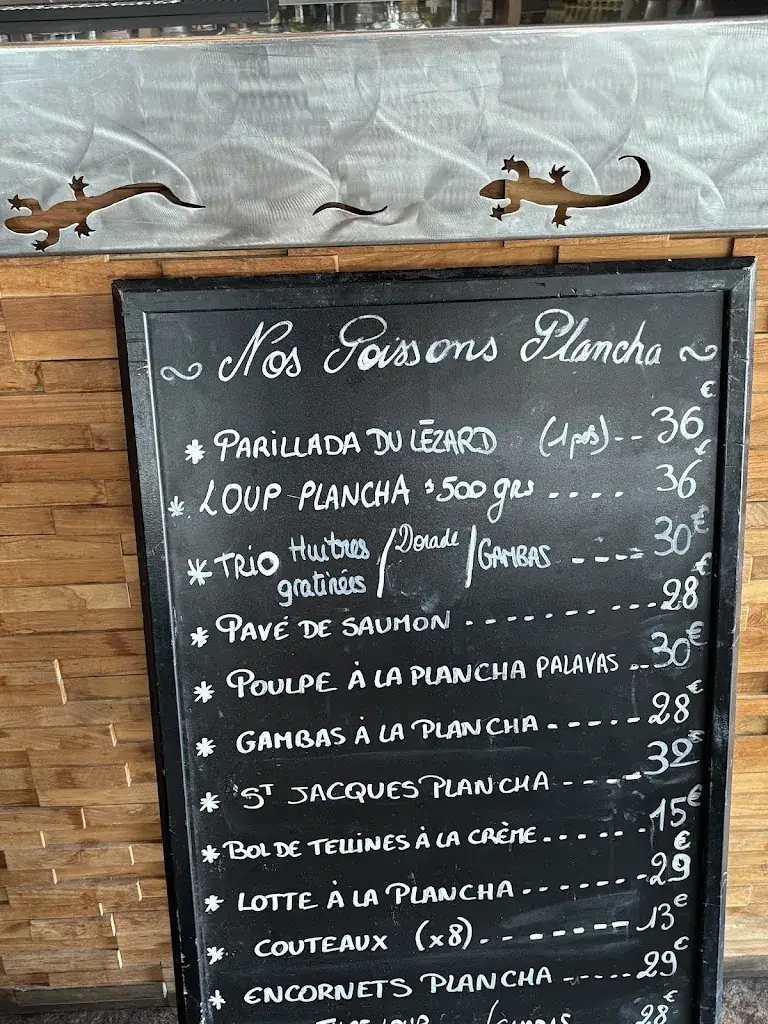 ~ Nos Poissons Plancha ~
* PARILLADA DU LÉZARD (1 pers)-- 36 €
* LOUP PLANCHA ±500 grs .... 36 €
* TRIO Huîtres gratinées / Dorade / GAMBAS ---- 30 €
* PAVÉ DE SAUMON --------- 28 €
* POULPE À LA PLANCHA PALAVAS -- 30 €
* GAMBAS À LA PLANCHA ----- 28 €
* ST JACQUES PLANCHA ---- 32 €
* BOL DE TELLINES À LA CRÈME ------ 15 €
* LOTTE À LA PLANCHA ------- 29 €
* COUTEAUX (x8) -------- 13 €
* ENCORNETS PLANCHA ----- 29 €
LOUP / GAMBAS 28 €